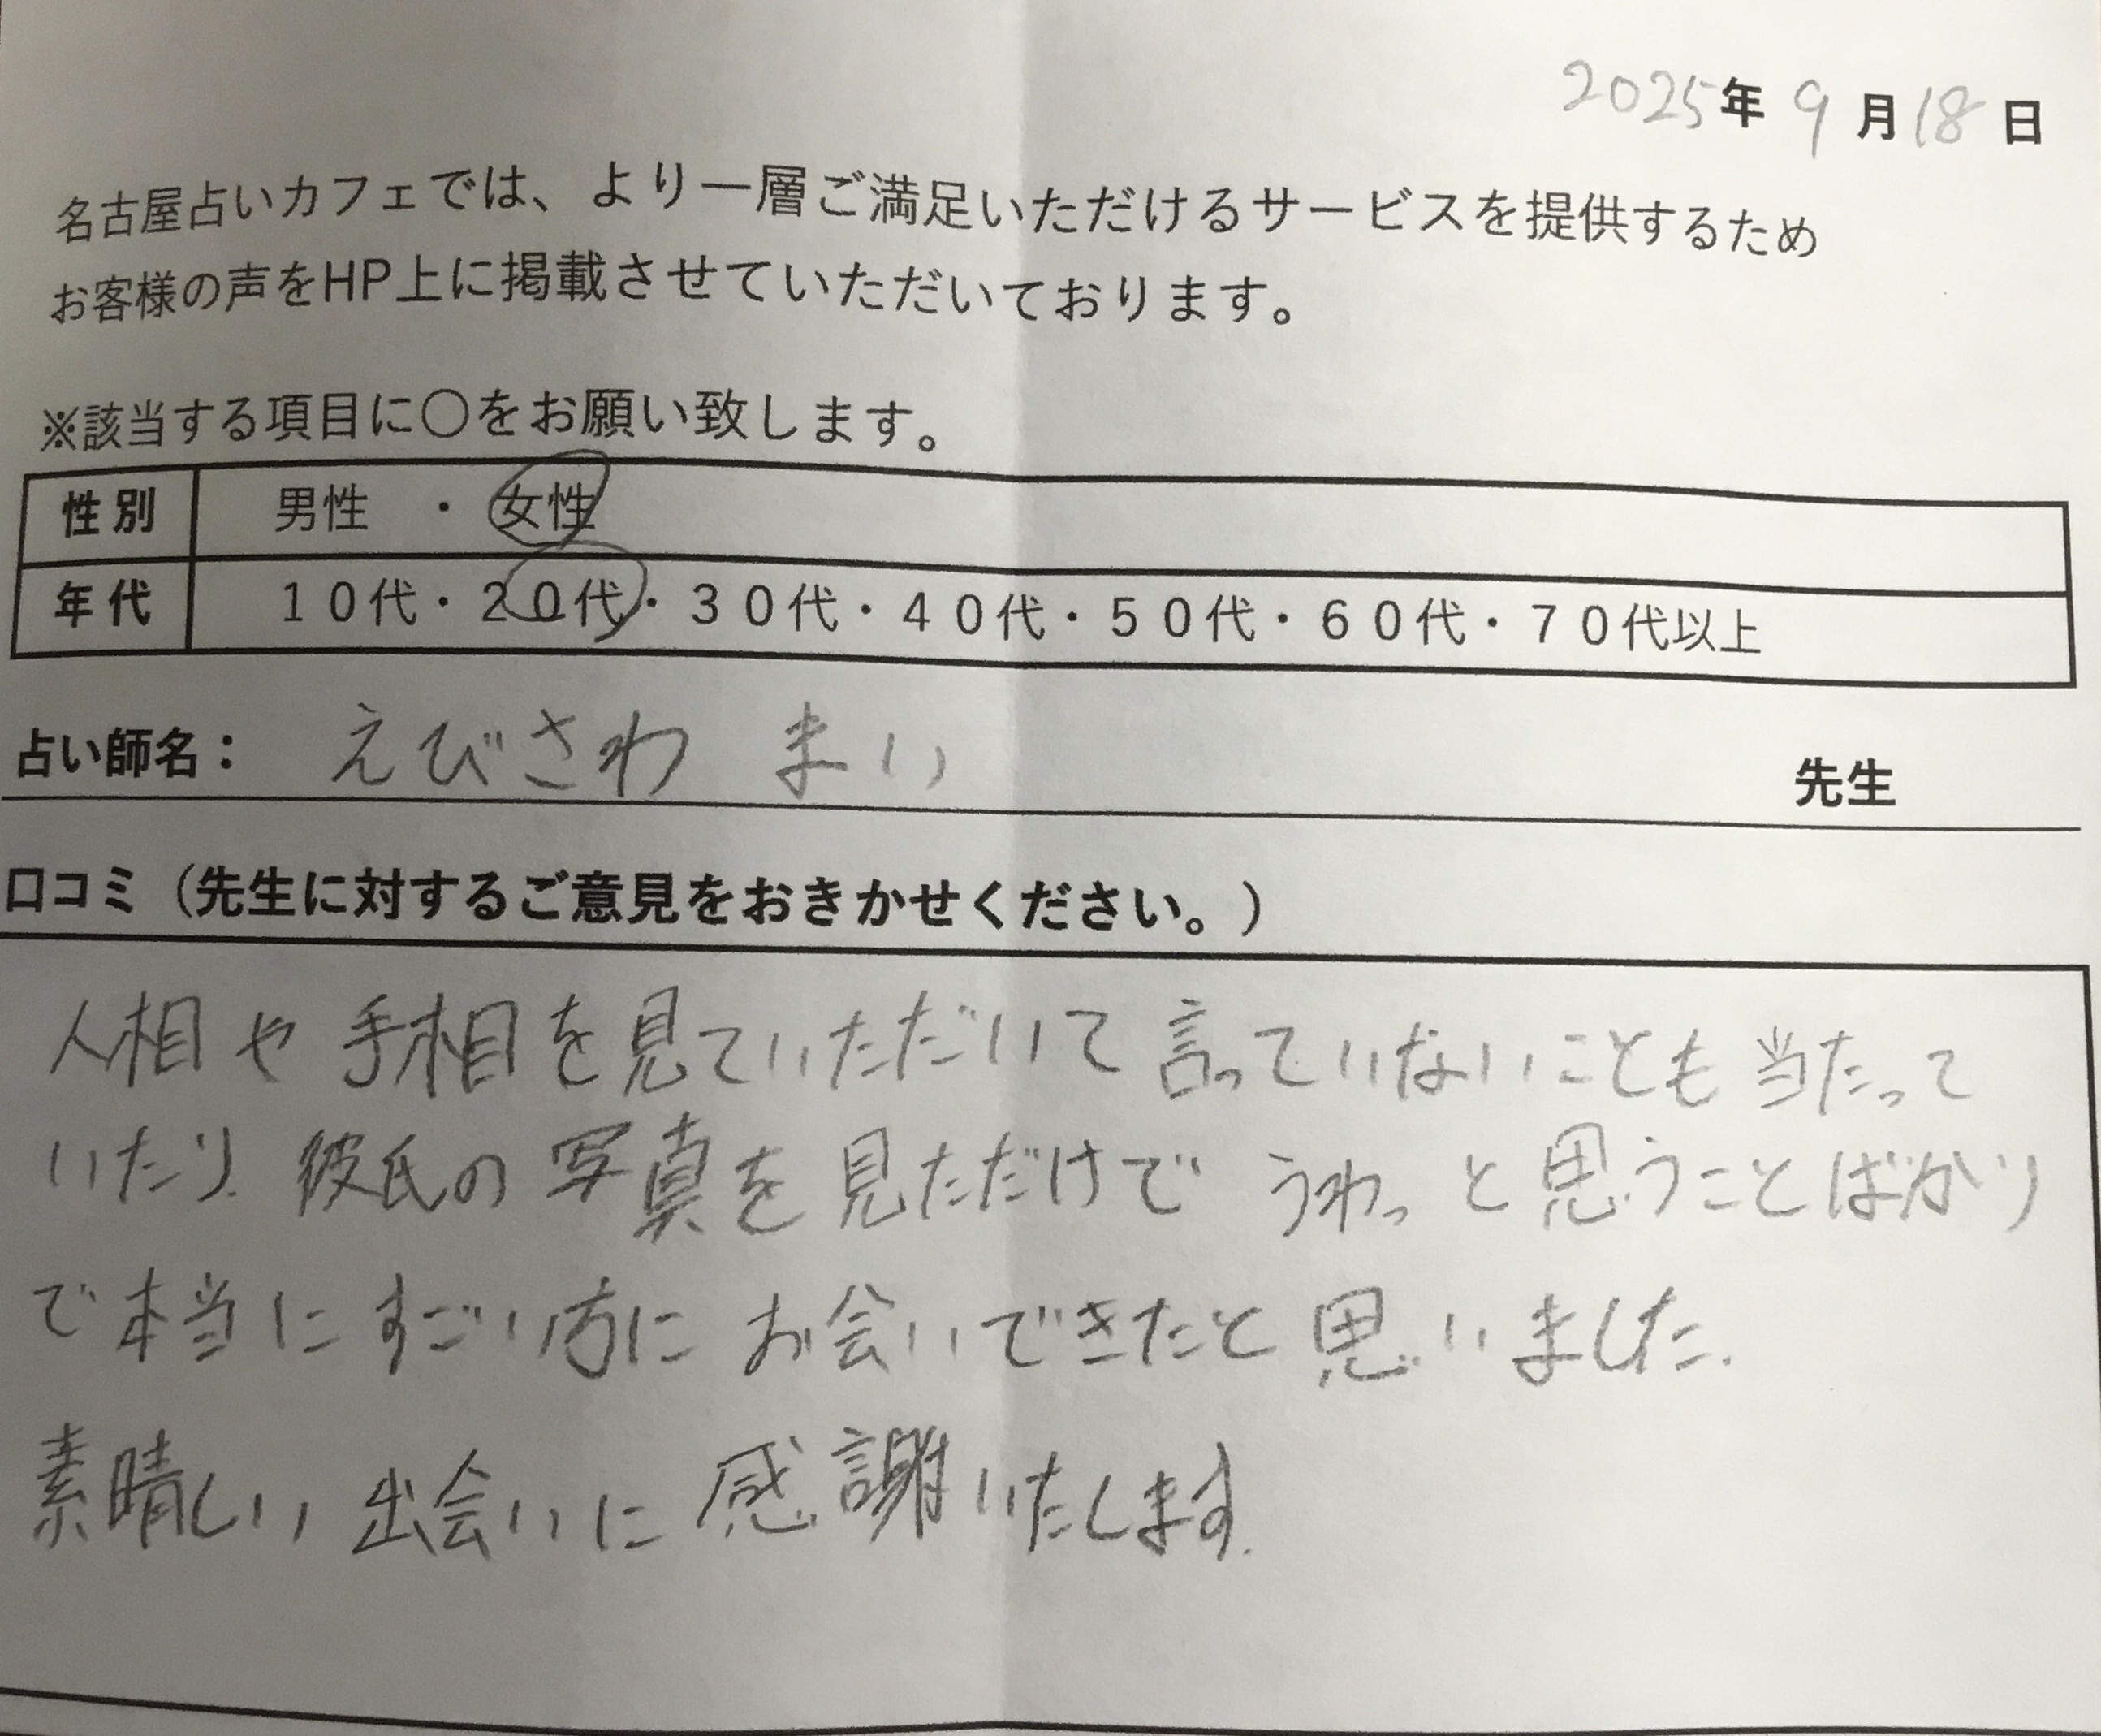 2025年 9月18日
名古屋占いカフェでは、より一層ご満足いただけるサービスを提供するため
お客様の声をHP上に掲載させていただいております。
※該当する項目に○をお願い致します。
性別 男性 ・ 女性
年代 10代・20代・30代・40代・50代・60代・70代以上
占い師名： えびさわ まい 先生
口コミ（先生に対するご意見をおきかせください。）
人相や手相を見ていただいて言っていないことも当たって
いたり、彼氏の写真を見ただけでうわっと思うことばかり
で本当にすごい方にお会いできたと思いました.
素晴しい出会いに感謝いたします.